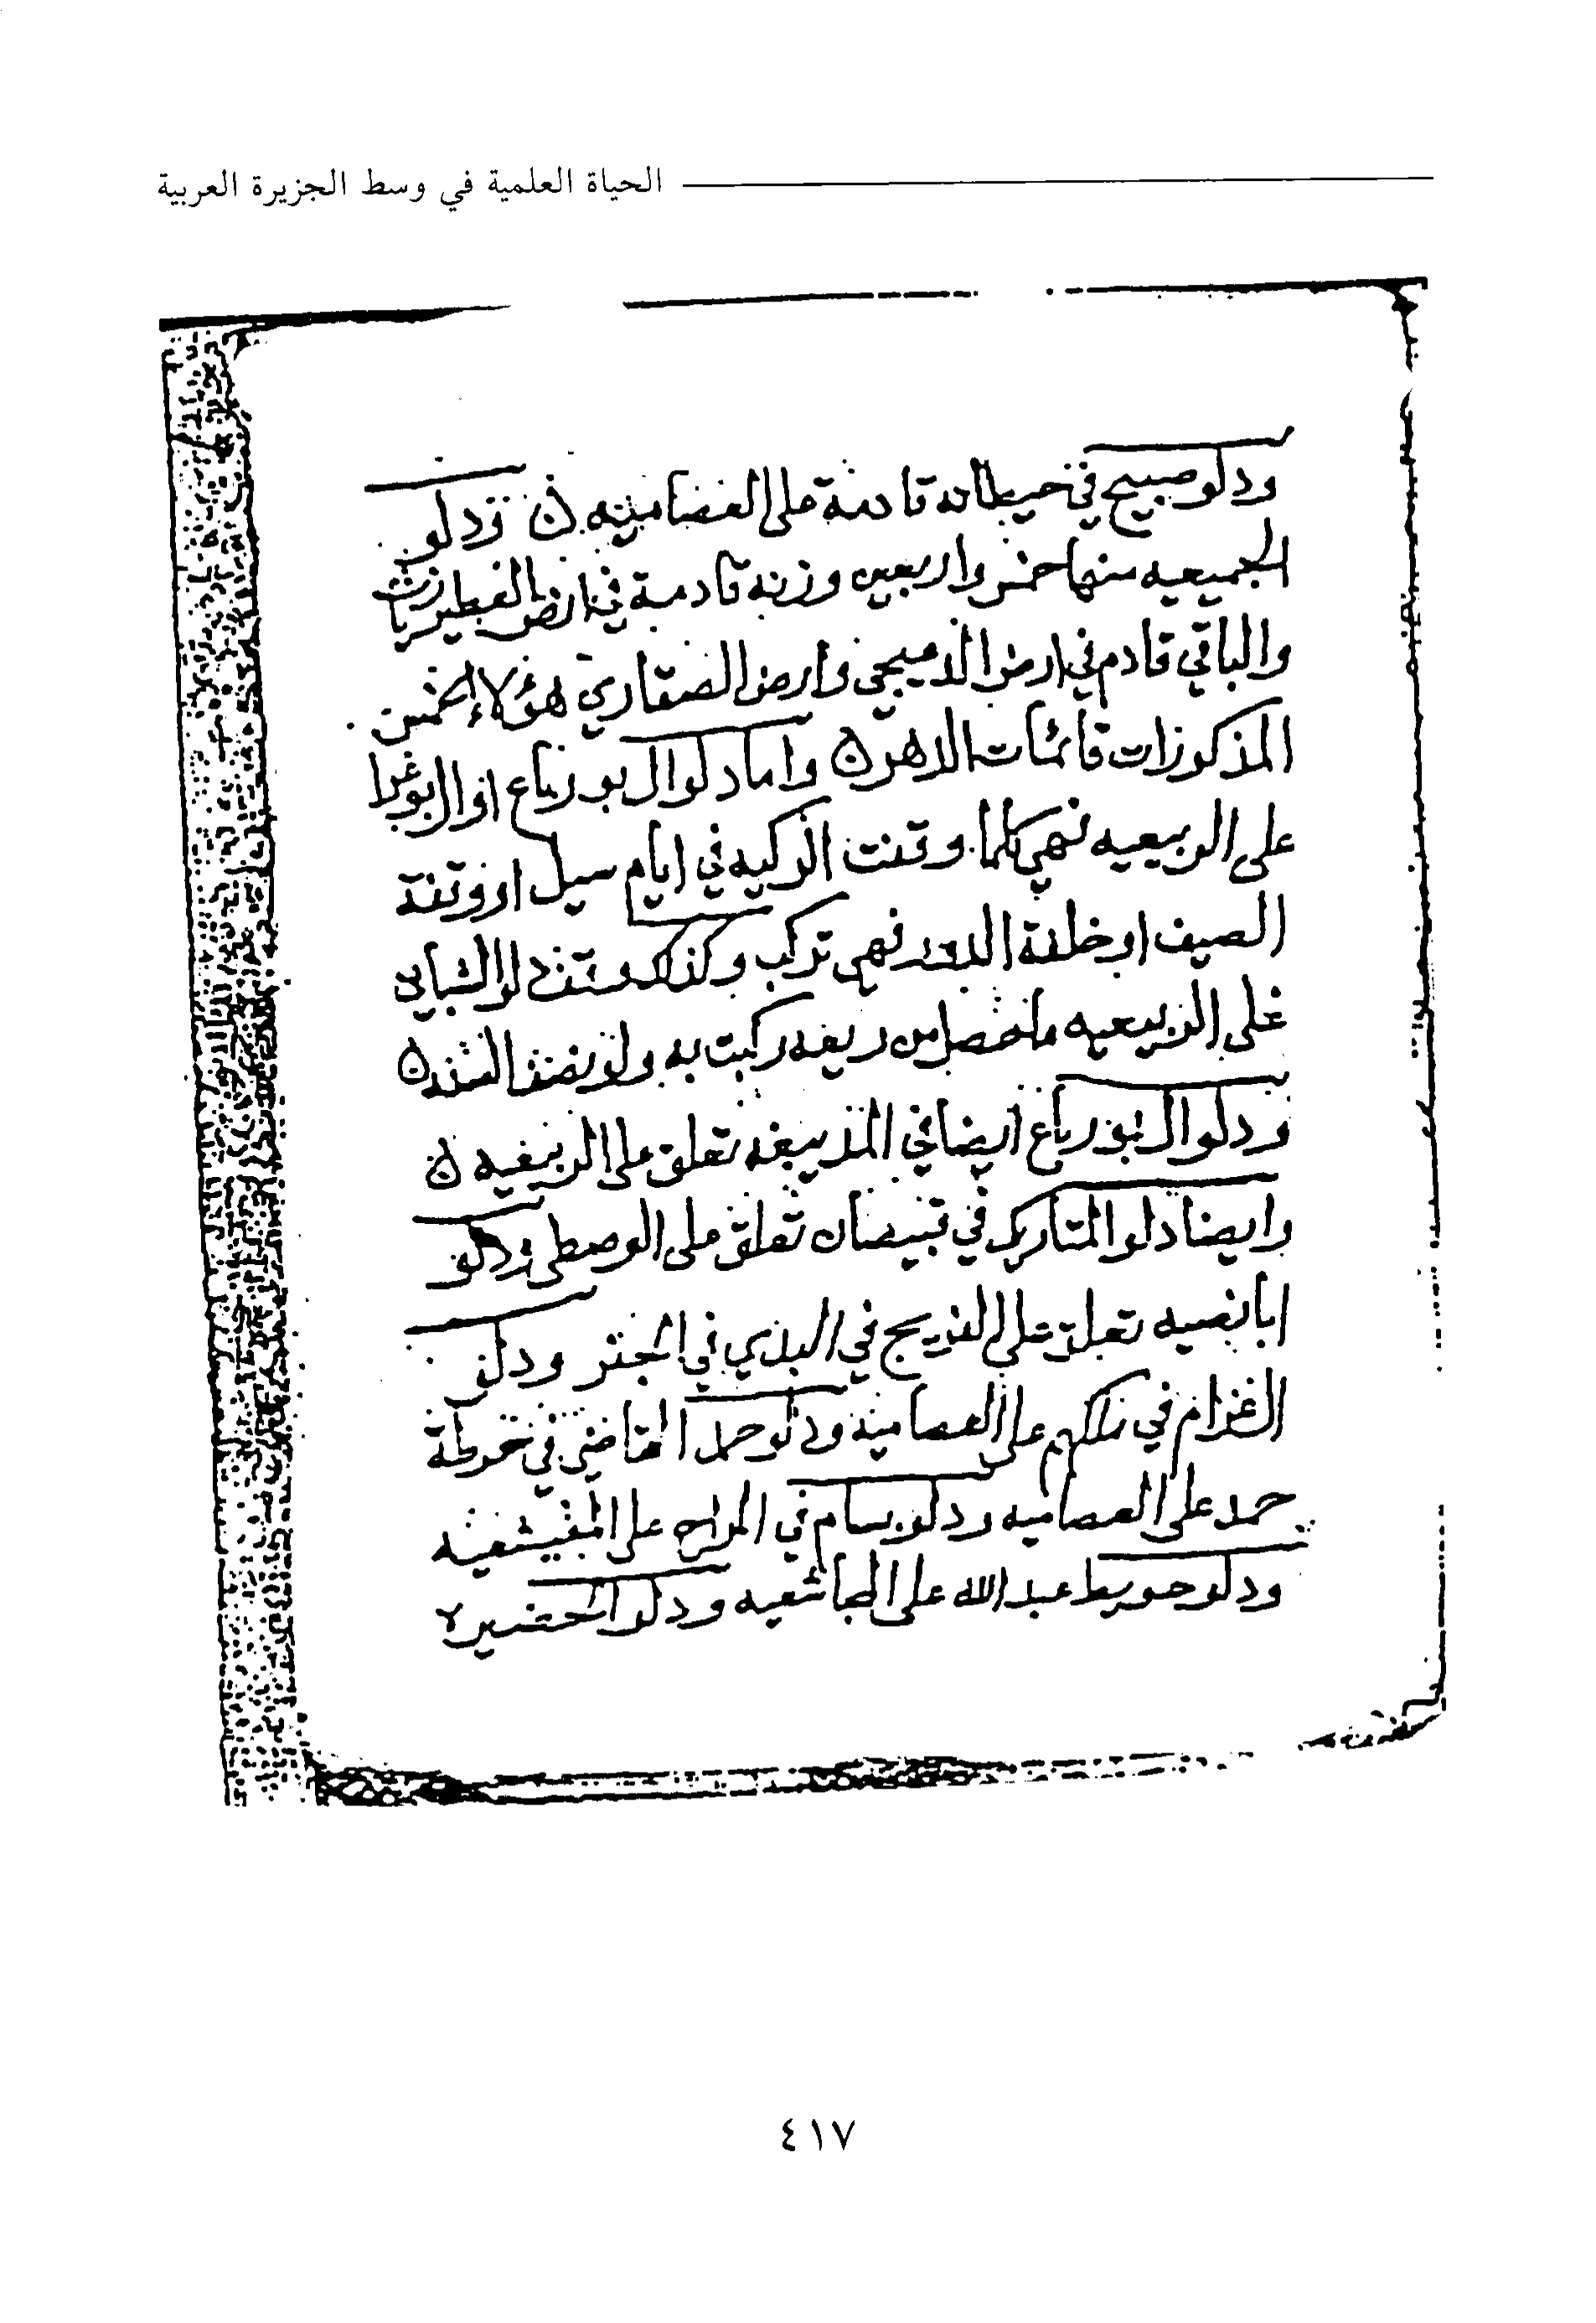 الحياة العلمية في وسط الجزيرة العربية
ودلو صبيح في حيطانه قادمة على العصاميه ودلو
الجميعيه منها خمس واربعين وزنه قادمة في ارض الفطير
والباقي قادم في ارض الدميجي وارض الصقاري هؤلاء الخمس
المذكورات قائمات الدهر واما دلو ال بو رباع او ال بو
على الربيعيه فهي كلما وقفت الركيه في ايام سيل او وقفة
الصيف او خلفة البدر فهي تركب وكذلك وقف دلو
على الربيعيه ما حصل من ريعه ركبت به ولو نصف
ودلو ال بو رباع ايضا في المذيبغه تعلق على الربيعيه
وايضا دلو المتاريك في قبيضان تعلق على الوصطى ودلو
ابا نصيه تعلق على الفريح في البلدي في الجفر ودلو
العزام في ملكهم على العصاميه ودلو حمد القاضي في خوطة
حمد على العصاميه ودلو بسام في المراح على
ودلو حويط عبدالله على ودلو الحضيرا
٤١٧